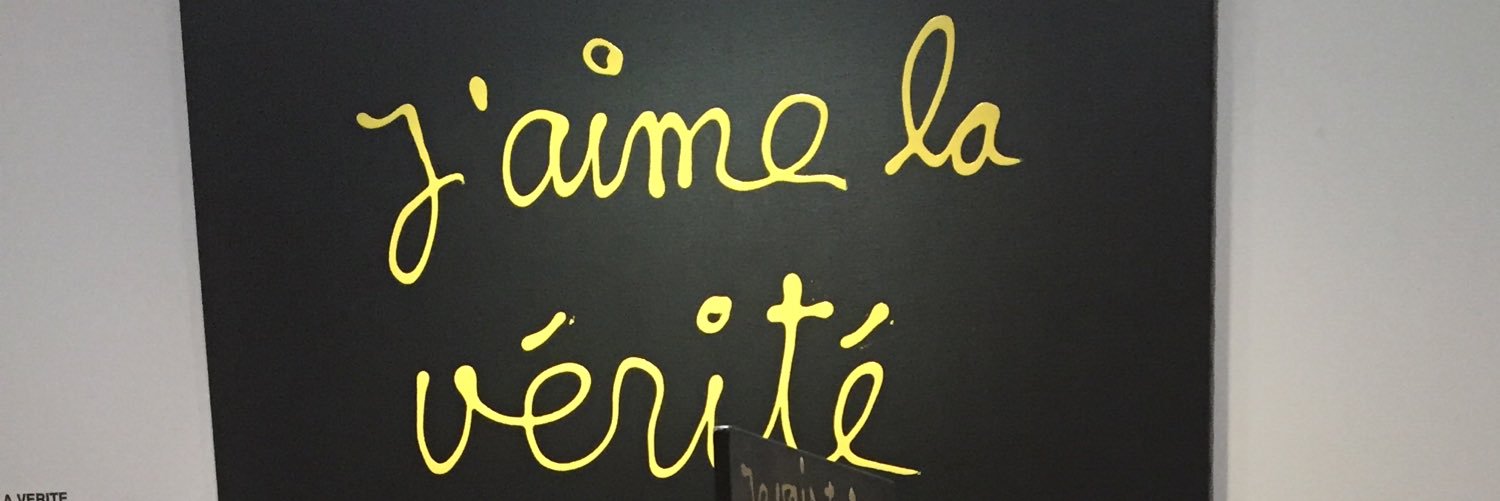 J'aime la
vérité
A VERITE